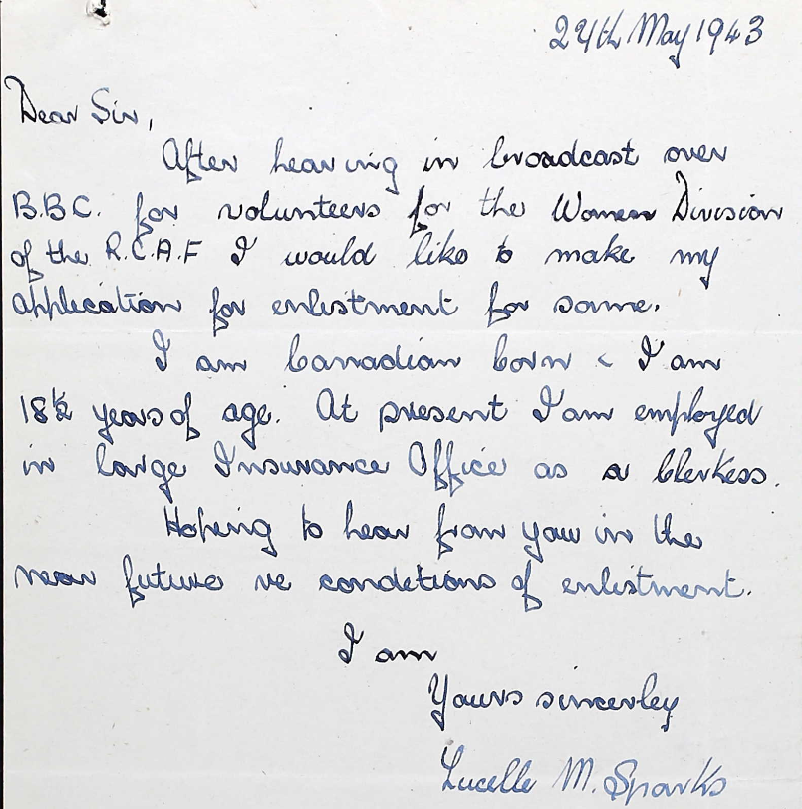 24th May 1943
Dear Sir,
After hearing in broadcast over
B.B.C. for volunteers for the Women Division
of the R.C.A.F I would like to make my
application for enlistment for same.
I am Canadian born & I am
18½ years of age. At present I am employed
in large Insurance Office as a Clerkess.
Hoping to hear from you in the
near future re conditions of enlistment.
I am
Yours sincerley
Lucelle M. Sparks